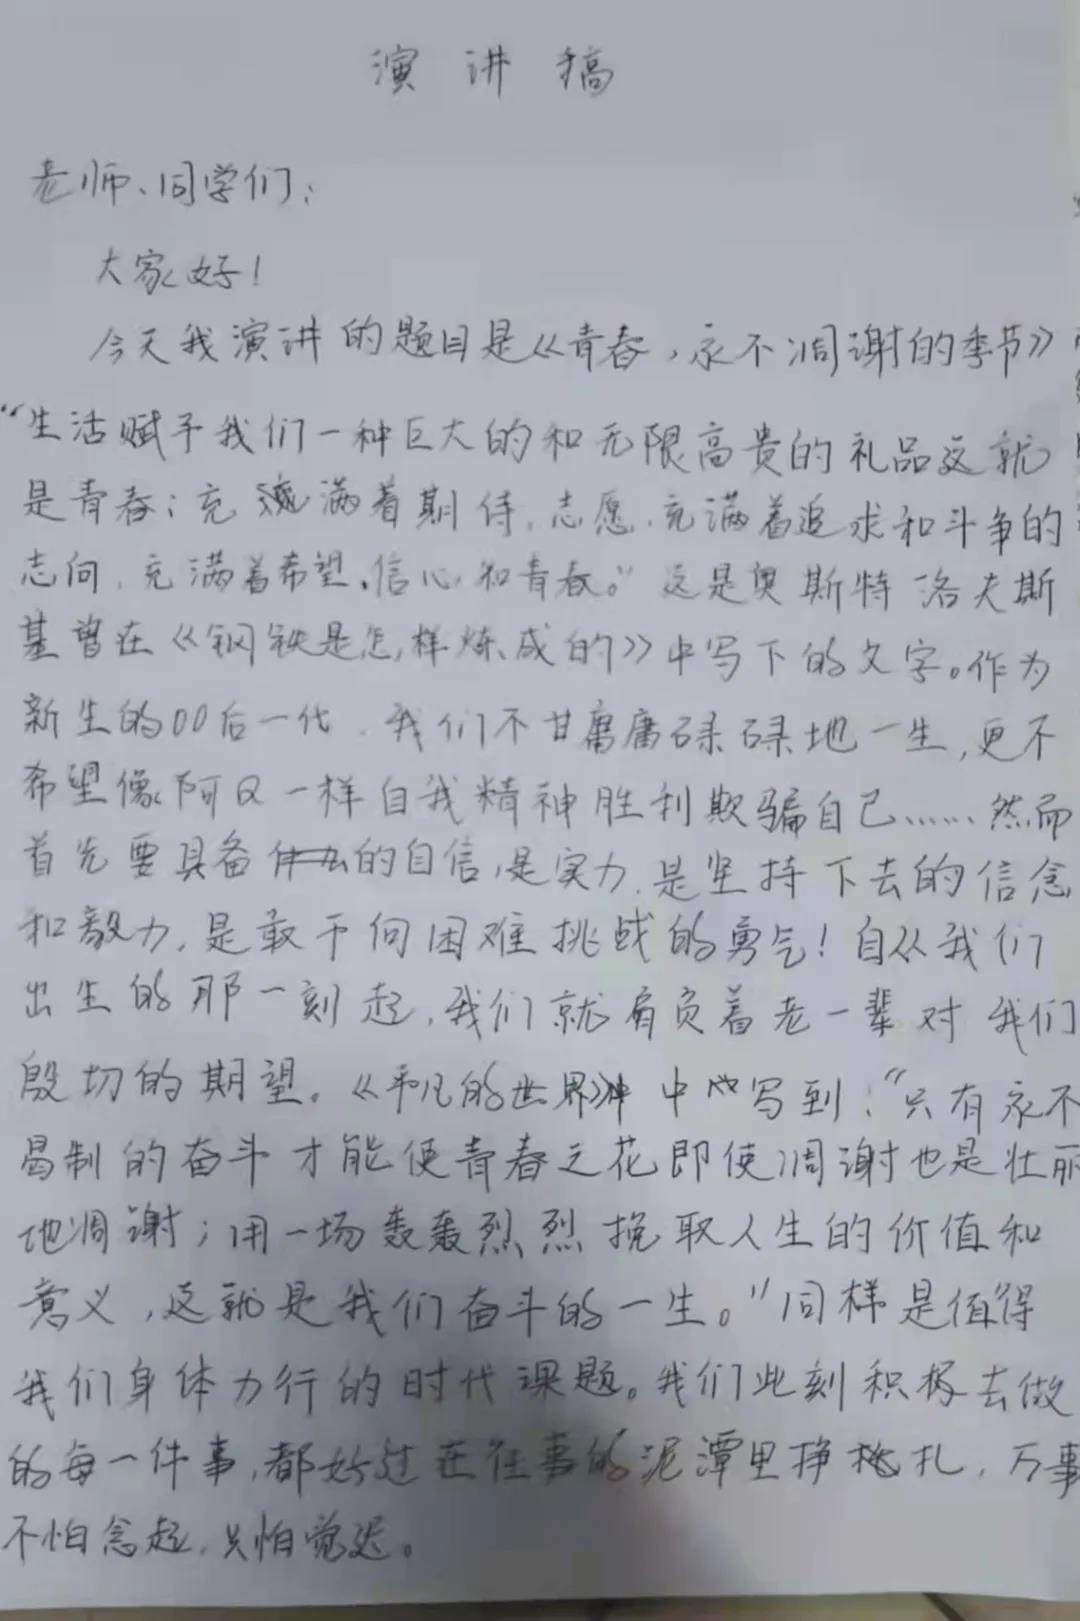 演讲稿
老师、同学们：
大家好！
今天我演讲的题目是《青春，永不凋谢的季节》
“生活赋予我们一种巨大的和无限高贵的礼品这就
是青春：充满着期待，志愿，充满着追求和斗争的
志向，充满着希望、信心和青春。”这是奥斯特洛夫斯
基曾在《钢铁是怎样炼成的》中写下的文字。作为
新生的00后一代，我们不甘庸庸碌碌地一生，更不
希望像阿Q一样自我精神胜利欺骗自己……然而
首先要具备的自信，是实力，是坚持下去的信念
和毅力，是敢于向困难挑战的勇气！自从我们
出生的那一刻起，我们就肩负着老一辈对我们
殷切的期望。《平凡的世界》中写到：“只有永不
曷制的奋斗才能使青春之花即使凋谢也是壮丽
地凋谢；用一场轰轰烈烈挽取人生的价值和
意义，这就是我们奋斗的一生。”同样是值得
我们身体力行的时代课题。我们此刻积极去做
的每一件事，都好过在往事的泥潭里挣扎，万事
不怕念起，只怕觉迟。